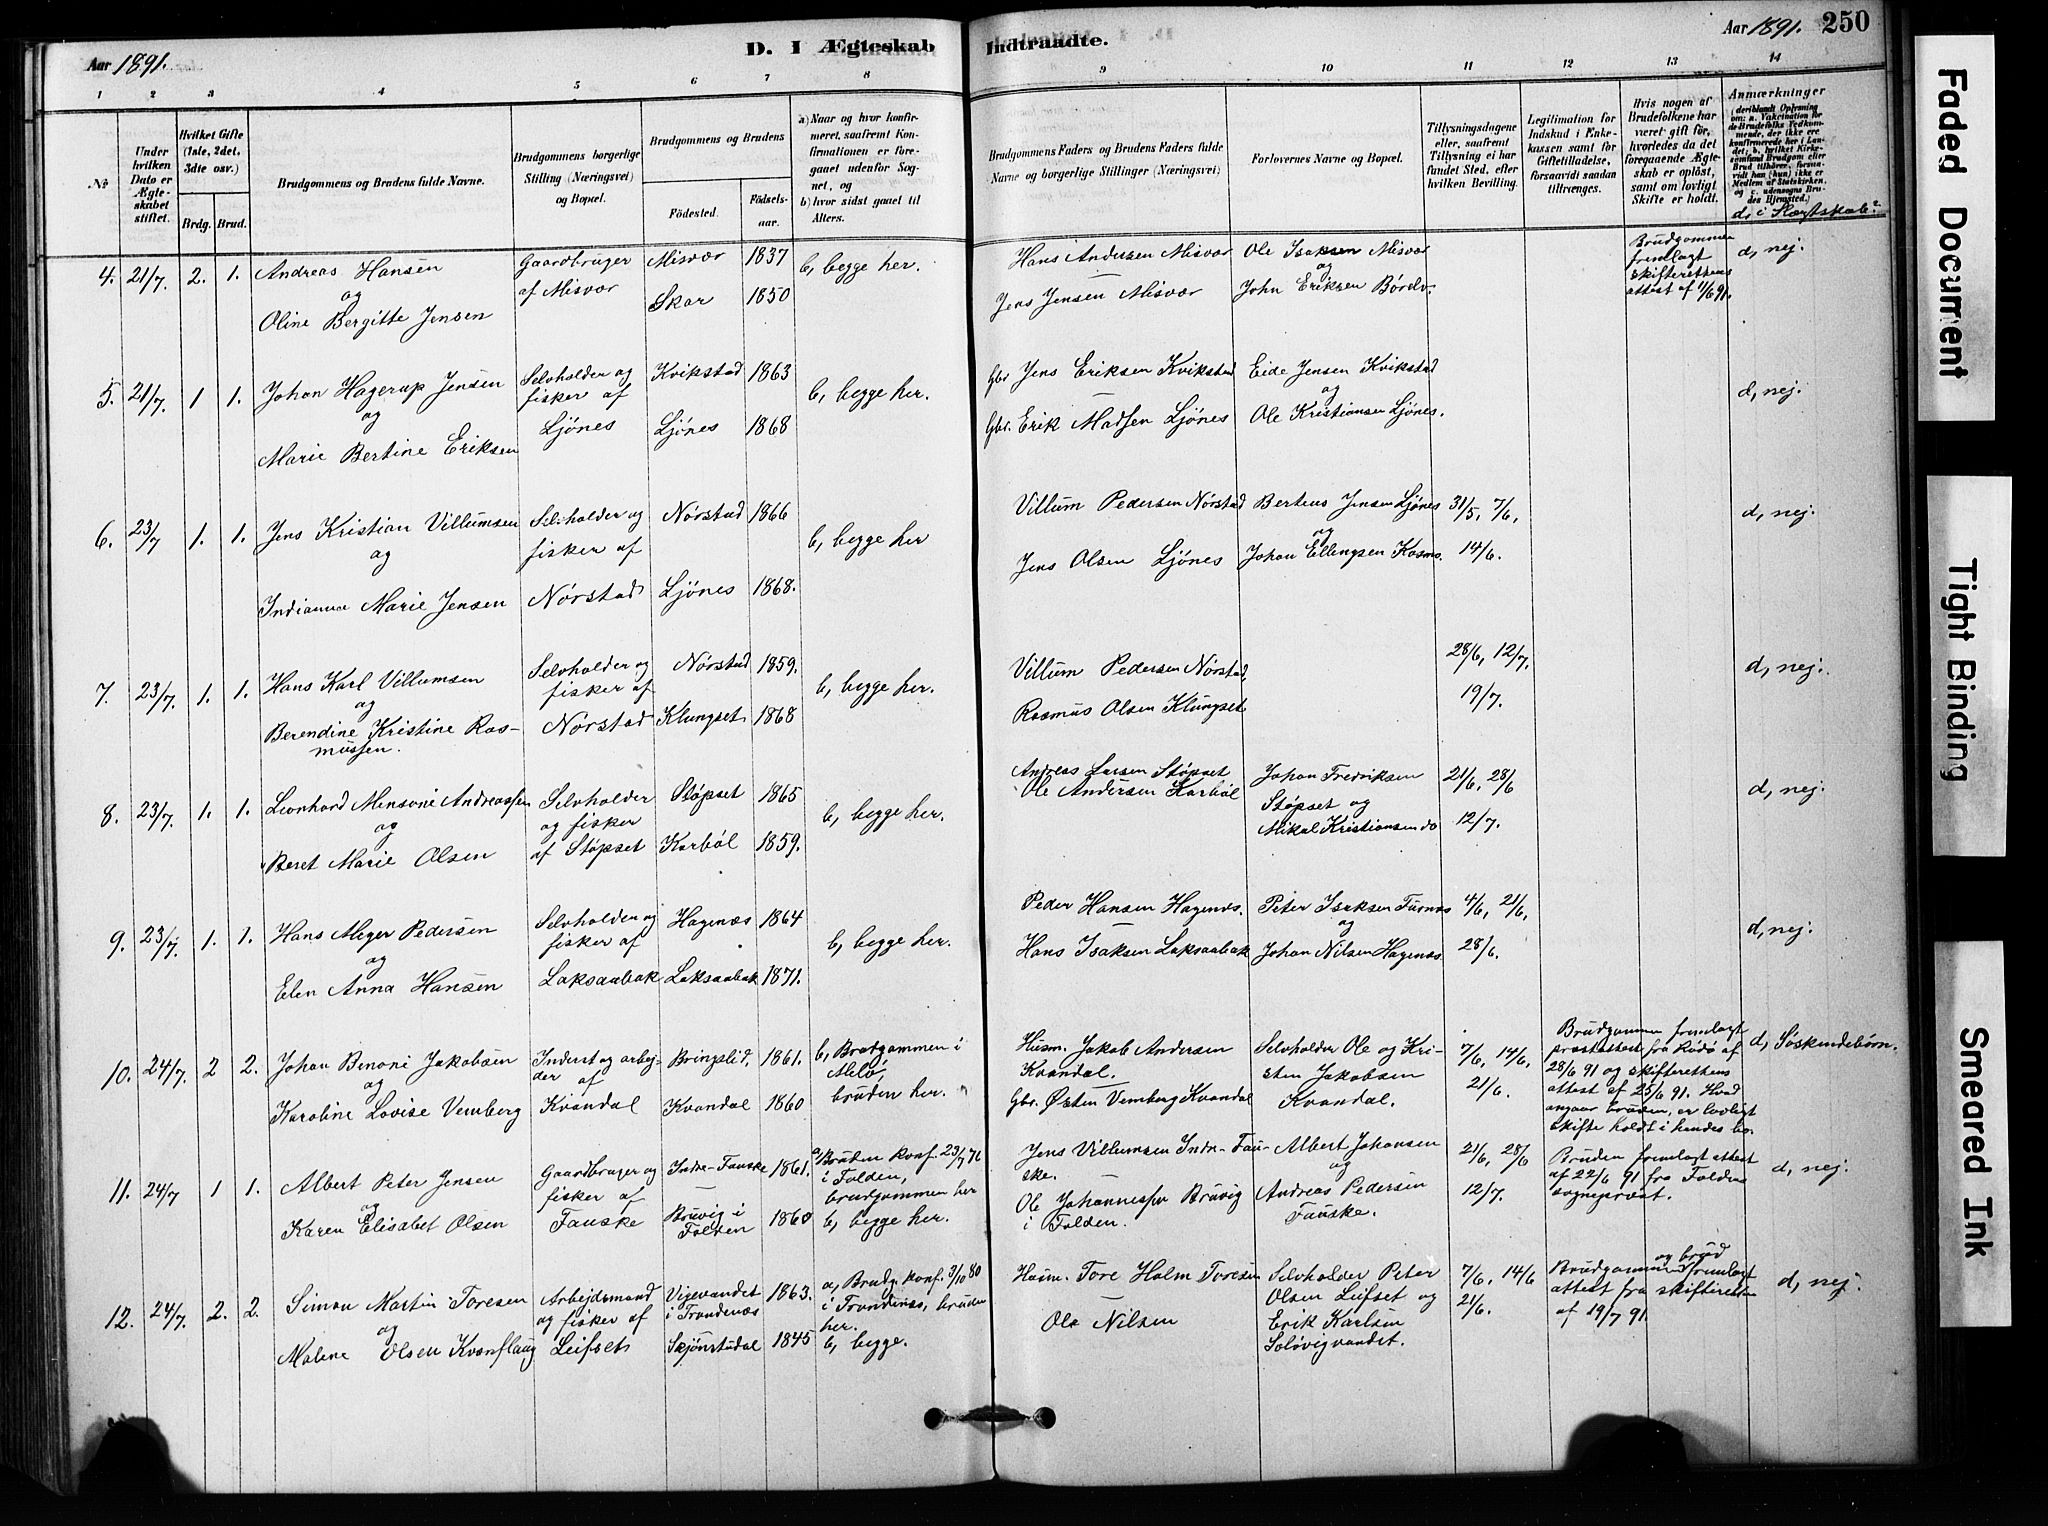 Aar 1891.
D. I Ægteskab
Indtraadte.
Aar 1891.
250
1 2 3 4 5 6 7 8
9 10 11 12 13 14
No
Under hvilken Dato er Ægteskabet stiftet.
Hvilket Gifte (1ste, 2det, 3dte osv.)
Brdg. Brud.
Brudgommens og Brudens fulde Navne.
Brudgommens borgerlige Stilling (Næringsvei) og Bopæl.
Brudgommens og Brudens
Födested.
Födselsaar.
a) Naar og hvor konfirmeret, saafremt Konfirmationen er foregaaet udenfor Sognet, og
b) hvor sidst gaaet til Alters.
Brudgommens Faders og Brudens Faders fulde Navne og borgerlige Stillinger (Næringsvei)
Forlovernes Navne og Bopæl.
Tillysningsdagene eller, saafremt Tillysning ei har fundet Sted, efter hvilken Bevilling.
Legitimation for Indskud i Enkekassen samt for Giftetilladelse, forsaavidt saadan tiltrænges.
Hvis nogen af Brudefolkene har været gift för, hvorledes da det foregaaende Ægteskab er oplöst, samt om lovligt Skifte er holdt.
Anmærkninger
d, i Slægtskab?
4. 21/7. 2. 1. Andreas Hansen og Oline Bergitte Jensen
Gaardbruger af Misvær
Misvær 1837
Skar 1850
b, begge her.
Hans Andersen Misvær
Jens Jensen Misvær
Ole Isaksen Misvær og John Eriksen Börelv.
Brudgommen fremlagt skifterettens attest af 11/6 91.
d, nej.
5. 21/7. 1 1. Johan Hagerup Jensen og Marie Bertine Eriksen
Selvholder og fisker af Ljönes
Kvikstad 1863
Ljönes 1868
b, begge her.
Gbr Jens Eriksen Kvikstad
Gbr. Erik Madsen Ljönes
Eide Jensen Kvikstad og Ole Kristiansen Ljönes.
d, nej.
6. 23/7 1. 1. Jens Kristian Villumsen og Indianna Marie Jensen
Selvholder og fisker af Nörstad
Nörstad 1866
Ljönes 1868.
b, begge her
Villum Pedersen Nörstad
Jens Olsen Ljönes
Berteus Jensen Ljönes og Johan Ellingsen Kosmo.
31/5, 7/6, 14/6.
d, nej.
7. 23/7. 1. 1. Hans Karl Villumsen og Berendine Kristine Rasmussen.
Selvholder og fisker af Nörstad
Nörstad 1859.
Klungset 1868
b, begge her.
Villum Pedersen Nörstad,
Rasmus Olsen Klungset
28/6, 12/7. 19/7.
d, nej.
8. 23/7. 1. 1. Leonhard Mensoni Andreassen og Beret Marie Olsen
Selvholder og fisker af Stöpset
Stöpset 1865
Karböl 1859.
b, begge her.
Andreas Larsen Stöpset
Ole Andersen Karböl
Johan Fredriksen Stöpset og Mikal Kristiansen do
21/6, 28/6 12/7.
d, nej.
9. 23/7. 1. 1. Hans Meyer Pedersen og Elen Anna Hansen
Selvholder og fisker af Laksaabak
Hagenæs 1864
Laksaabak 1871.
b, begge her.
Peder Hansen Hagenæs.
Hans Isaksen Laksaabak
Peter Isaksen Furnæs og Johan Nilsen Hagenæs
4/6, 21/6, 28/6.
d, nej.
10. 24/7. 2 2. Johan Benoni Jakobsen og Karoline Lovise Vemberg
Inderst og arbejder af Kvandal
Bringslid, 1861.
Kvandal 1860
b, Brudgommen i Melö, bruden her.
Husm. Jakob Andersen Kvandal.
Gbr. Östen Vemberg Kvandal
Selvholder Ole og Kristen Jakobsen Kvandal.
7/6, 14/6, 21/6.
Brudgommen fremlagt præsteattest fra Rödö af 28/6 91 og skifterettens attest af 25/6 91. Hvad angaar bruden, er lovligt skifte holdt i hendes bo.
d, Söskendebörn.
11. 24/7 1 1. Albert Peter Jensen og Karen Elisabet Olsen
Gaardbruger og fisker af Fauske
Indre-Fauske 1861.
Bruvig i Folden 1860
a, Bruden konf. 23/7 76 i Folden, brudgommen her
b, begge her.
Jens Villumsen Indr-Fauske.
Ole Johannessen Bruvig i Folden.
Albert Johansen og Andreas Pedersen Fauske.
21/6, 28/6 12/7.
Bruden fremlagt attest af 22/6 91 fra Foldens sognepræst.
d, nej.
12. 24/7. 2. 2. Simon Martin Toresen og Malene Olsen Kvanflaug
Arbejdsmand og fisker af Leifset
Vigevandet i Trondenæs 1863.
Skjönstudal 1845
a, Brudg. konf. 3/10 80 i Trondenæs, bruden her.
b, begge.
Husm. Tore Holm Toresen
Ole Nilsen
Selvholder Peter Olsen Leifset og Erik Karlsen Solövigvandet.
7/6, 14/6 21/6.
Brudgommen og brud fremlagt attest fra skifteretten af 19/7 91.
d, nej.
Faded Document
Tight Binding
Smeared Ink